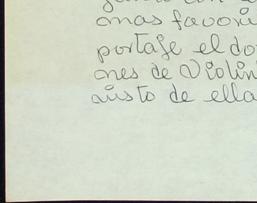 mas favori
portaje el do
ones de Violin
usto de ella